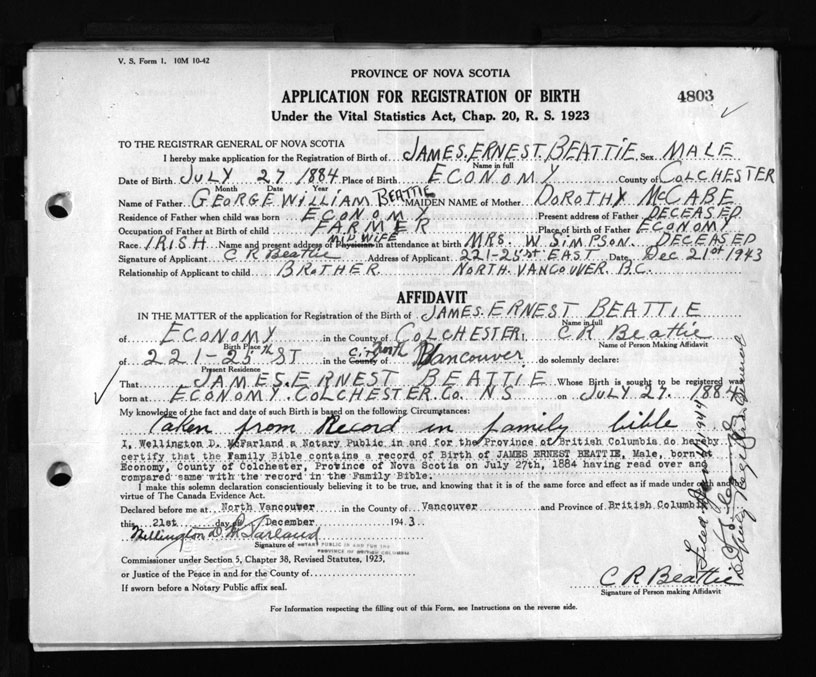 V. S. Form 1. 10M 10-42
PROVINCE OF NOVA SCOTIA
APPLICATION FOR REGISTRATION OF BIRTH
4803
Under the Vital Statistics Act, Chap. 20, R. S. 1923
TO THE REGISTRAR GENERAL OF NOVA SCOTIA
I hereby make application for the Registration of Birth of JAMES. ERNEST. BEATTIE. Sex MALE
Name in full
Date of Birth JULY 27 1884 Place of Birth ECONOMY County of COLCHESTER
Month Date Year
Name of Father GEORGE WILLIAM BEATTIE MAIDEN NAME of Mother DOROTHY McCABE
Residence of Father when child was born ECONOMY Present address of Father DECEASED
Occupation of Father at Birth of child FARMER Place of birth of Father ECONOMY
Race IRISH Name and present address of Physician MIDWIFE in attendance at birth MRS. W SIMPSON. DECEASED
Signature of Applicant C R Beattie Address of Applicant 221-25st EAST Date Dec 21st 1943
Relationship of Applicant to child BROTHER. NORTH. VANCOUVER. B.C.
AFFIDAVIT
IN THE MATTER of the application for Registration of the Birth of JAMES. ERNEST BEATTIE
Name in full
of ECONOMY in the County of COLCHESTER, C R Beattie
Birth Place Name of Person Making Affidavit
of 221-25th ST in the County City North Vancouver do solemnly declare:
Present Residence
That JAMES. ERNEST BEATTIE Whose Birth is sought to be registered was
born at ECONOMY. COLCHESTER. Co. N S on JULY 27. 1884
My knowledge of the fact and date of such Birth is based on the following Circumstances:
Taken from Record in family bible
I, Wellington D. McFarland a Notary Public in and for the Province of British Columbia do hereby
certify that the Family Bible contains a record of Birth of JAMES ERNEST BEATTIE, Male, born
Economy, County of Colchester, Province of Nova Scotia on July 27th, 1884 having read over and
compared same with the record in the Family Bible.
I make this solemn declaration conscientiously believing it to be true, and knowing that it is of the same force and effect as if made under oath and
virtue of The Canada Evidence Act.
Declared before me at North Vancouver in the County of Vancouver and Province of British Columbia
this 21st day of December 1943.
Wellington D. McFarland
Signature of NOTARY PUBLIC IN AND FOR THE
PROVINCE OF BRITISH COLUMBIA
Commissioner under Section 5, Chapter 38, Revised Statutes, 1923,
or Justice of the Peace in and for the County of
If sworn before a Notary Public affix seal.
C R Beattie
Signature of Person making Affidavit
For Information respecting the filling out of this Form, see Instructions on the reverse side.
1944